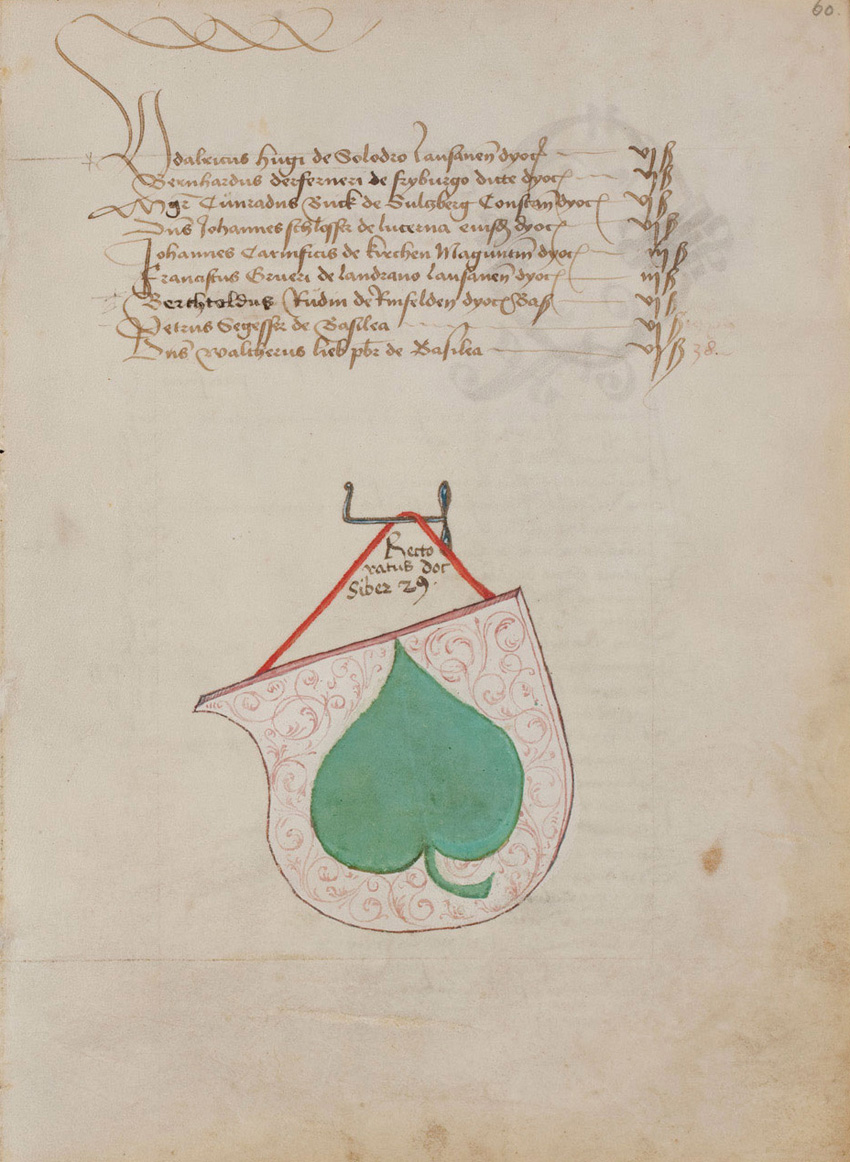 60.
Udalricus hugi de Solodro lausaneñ dyoc̃ vj ß
Bernhardus de fryburgo dicte dyoc̃ vj ß
Mgr Cůnradus Buck de Sultzberg Constañ dyoc̃ vj ß
Dns Johannes de lucerna eiusd dyoc̃ vj ß
Johannes Carnificis de kirchen Maguntiñ dyoc̃ iij ß
Franciscus Grueri de landrano lausaneñ dyoc̃ iij ß
Berchtoldus Rüdin de Rinfelden dyoc̃ Bas vj ß
Petrus Segesser de Basilea vj ß
Dns waltherus lieb pbr de Basilea vj ß 38.
Recto
ratus doc
Siber 29.